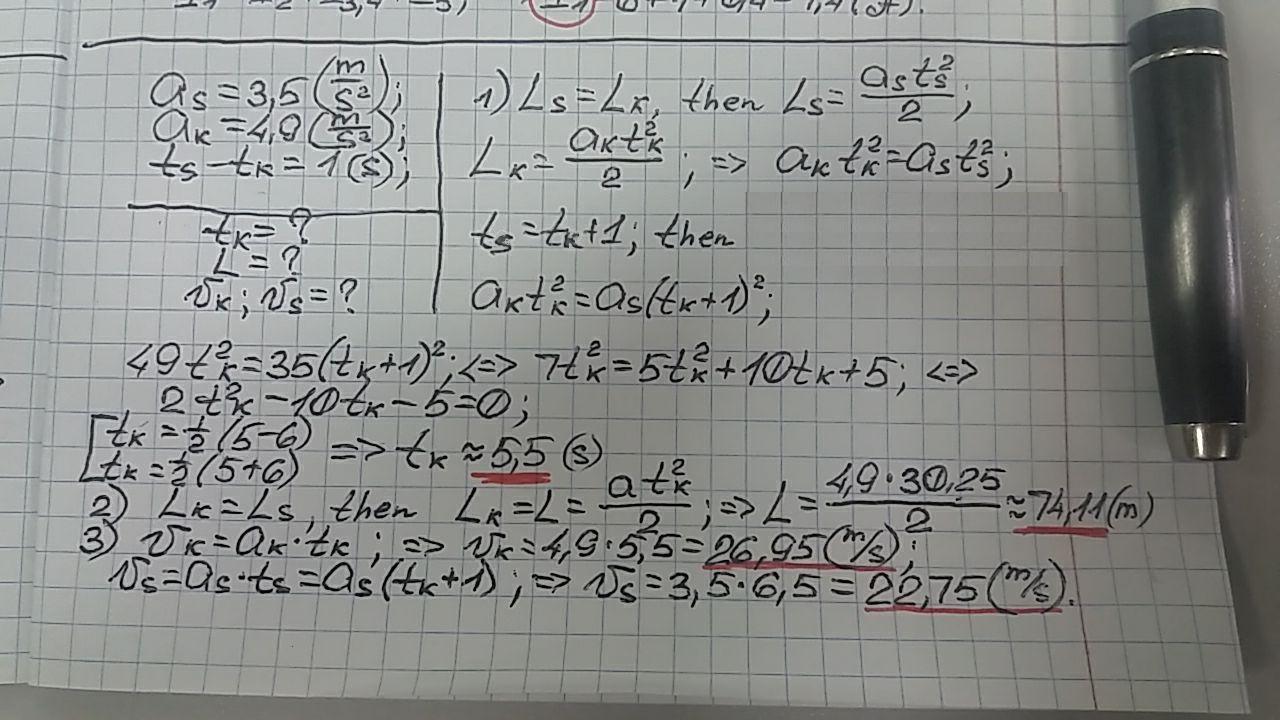 aₛ = 3,5 (m/s²);
aₖ = 4,9 (m/s²);
tₛ - tₖ = 1 (s);
tₖ = ?
L = ?
vₖ; vₛ = ?
1) Lₛ = Lₖ, then Lₛ = aₛtₛ²/2;
Lₖ = aₖtₖ²/2; => aₖtₖ² = aₛtₛ²;
tₛ = tₖ+1; then
aₖtₖ² = aₛ(tₖ+1)²;
49tₖ² = 35(tₖ+1)²; <=> 7tₖ² = 5tₖ² + 10tₖ + 5; <=>
2tₖ² - 10tₖ - 5 = 0;
[tₖ = 1/2 (5-6)
tₖ = 1/2 (5+6) => tₖ ≈ 5,5 (s)
2) Lₖ = Lₛ, then Lₖ = L = atₖ²/2; => L = 4,9·30,25/2 ≈ 74,11 (m)
3) vₖ = aₖ·tₖ; => vₖ = 4,9·5,5 = 26,95 (m/s);
vₛ = aₛ·tₛ = aₛ(tₖ+1); => vₛ = 3,5·6,5 = 22,75 (m/s).